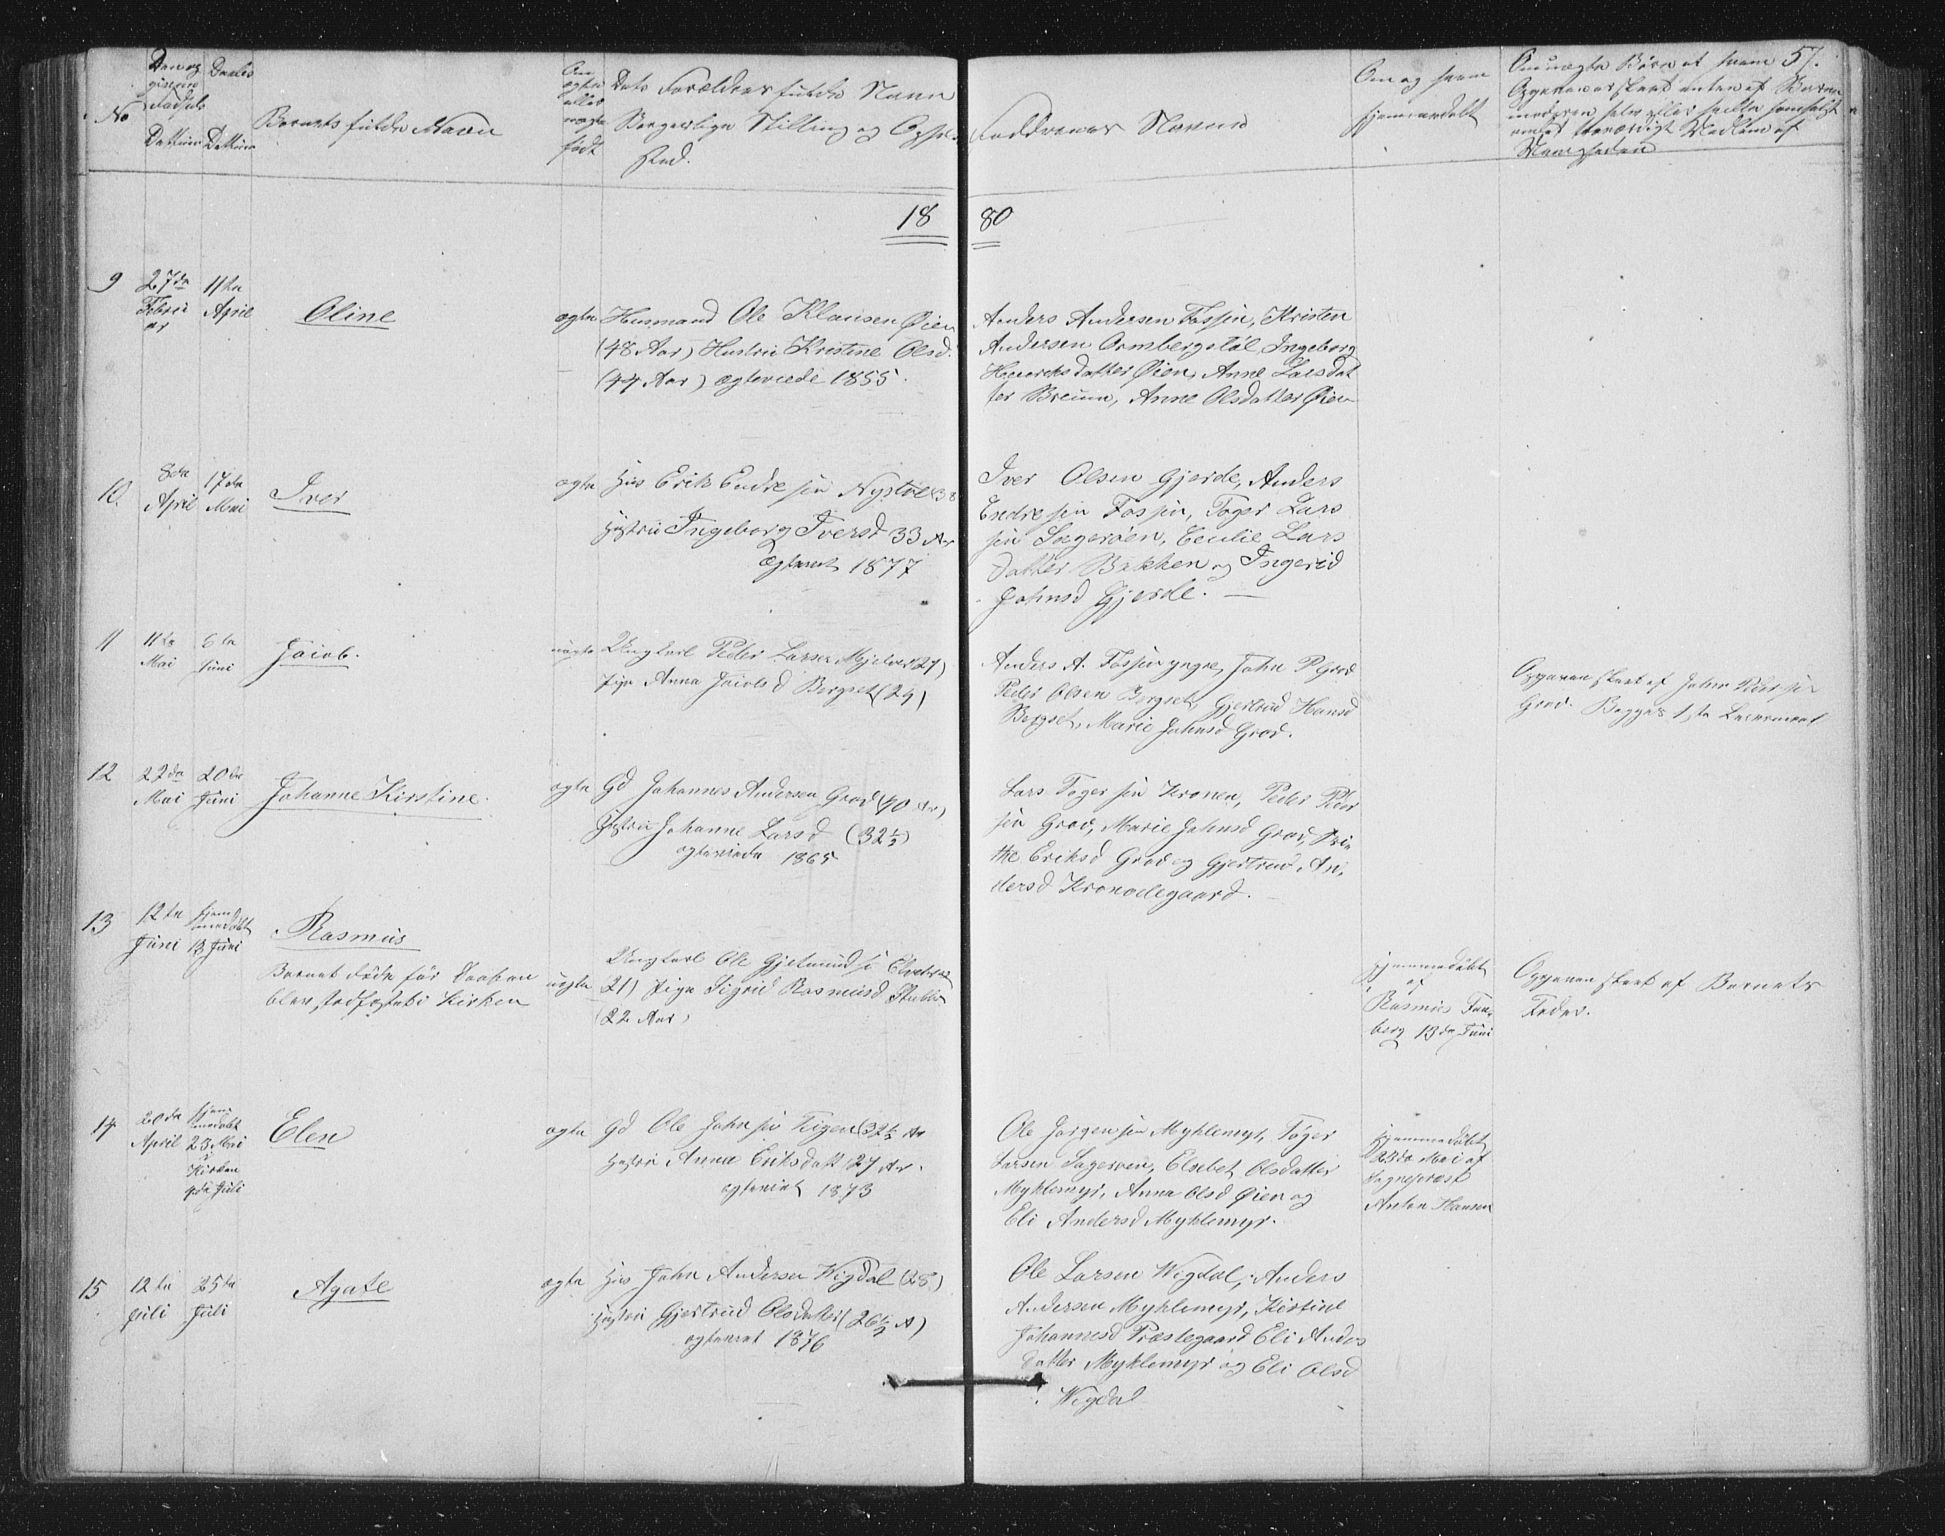 57.
No
Døbes
Fødsels
Dattum Dattum
Barnets fulde Navn
ægte
eller
uægte
født
Dets Forældres fulde Navn
Borgerlige Stilling og
Sted.
Faddernes Navne
Om og hvem
hjemmedøbt
Om uægte Børn af hvem
Menigheden
18 80
9 27de 11te
April
Oline
ægte
Husmand Ole Klausen Øien
(48 Aar) Hustru Kristine Olsd.
(44 Aar) ægteviede 1855.
Anders Andersen Fossen, Kristen
Andersen Ingeborg
datter Øien, Anne Larsdat
ter Breum, Anne Olsdatter Øien
10. 8de 17de
April Mai
Iver
ægte
Hus Erik Endresen Nystøl (38
Hustru Ingeborg Iversd 33 Ar
Ægteviet 1877
Iver Olsen Gjerde, Anders
Endresen Fossen, Tøger Lars
sen Sagerøen, Cecilie Lars
datter Bakken og Ingerid
Johnsd Gjerde.
11 11te 6te
Mai Juni
Jacob.
uægte
Ungkarl Peder Larsen Mjelver 27)
Pige Anna Jacobsd Bergset (29)
Anders A. Fossen yngre, John P Grov
Peder Olsen Bergset, Gjertrud Hansd
Bergset, Marie Johnsd Grov.
Opgaven skeet af John Pedersen
Grov. Begges 1ste Leiermaal
12 22de 20de
Mai Juni
Johanne Kirstine.
ægte
Gd Johannes Andersen Grov (40 Ar)
Hustru Johanne Larsd (32½)
ægteviede 1865
Lars Tøgersen Kronen, Peder Peder
sen Grov, Marie Johnsd Grov,
Eriksd Grov og Gjertrud An,
dersd Kronoldegaard.
13 12te hjem
medøbt
Juni 13 Juni
Rasmus
Barnet døde før Daaben
blev stadfæstet i Kirken
uægte
Ungkarl Ole Gjetmunds
21) Pige Sigrid Rasmusd
(22 Aar)
Hjemmedøbt
af
Rasmus Faa
berg 13de Juni
Opgaven skeet af Barnets
Fader.
14 20de hjem
medøbt
April 23 Mai
i
Kirken
4de Juli
Elen
ægte
Gd Ole Johnsen Teigen (32½ Ar
Hustru Anna Eriksdatt (27 Ar.
ægteviet 1873
Ole Jørgensen Myklemyr, Tøger
Larsen Sagerøen, Elsebet Olsdatter
Myklemyr, Anna Olsd Øien og
Eli Andersd Myklemyr.
Hjemmedøbt
23de Mai af
Sognepræst
Anton Hansen
15 12te 25te
Juli Juli
Agate
ægte
Hus John Andersen Vigdal (28)
Hustru Gjertrud Olsdatter (26½ A)
ægteviet 1876
Ole Larsen Vigdal, Anders
Andersen Myklemyr, Kirstine
Johannesd Præstegaard Eli Anders
datter Myklemyr og Eli Olsd
Vigdal